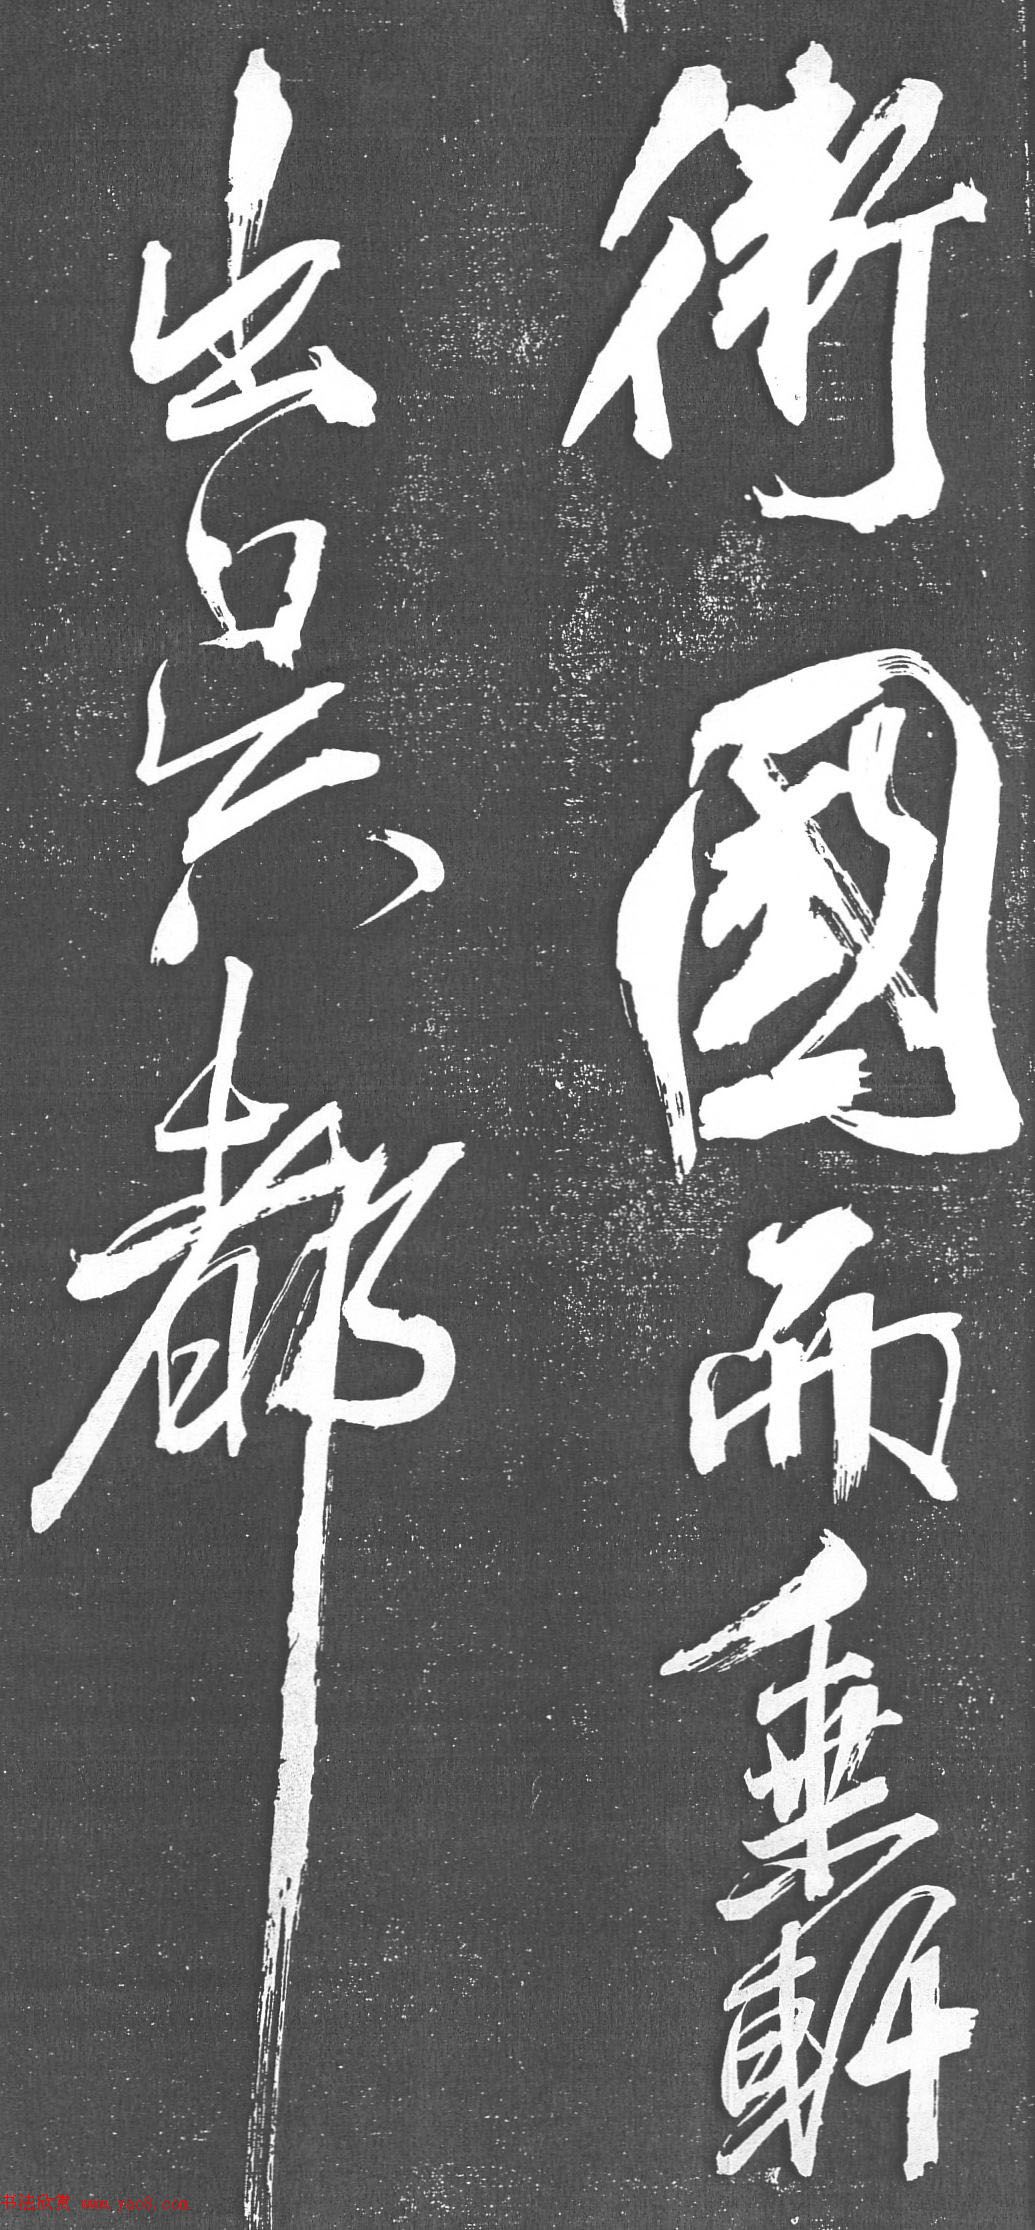 衛國而乘軒
出吳都
书法欣赏 www.yac8.com